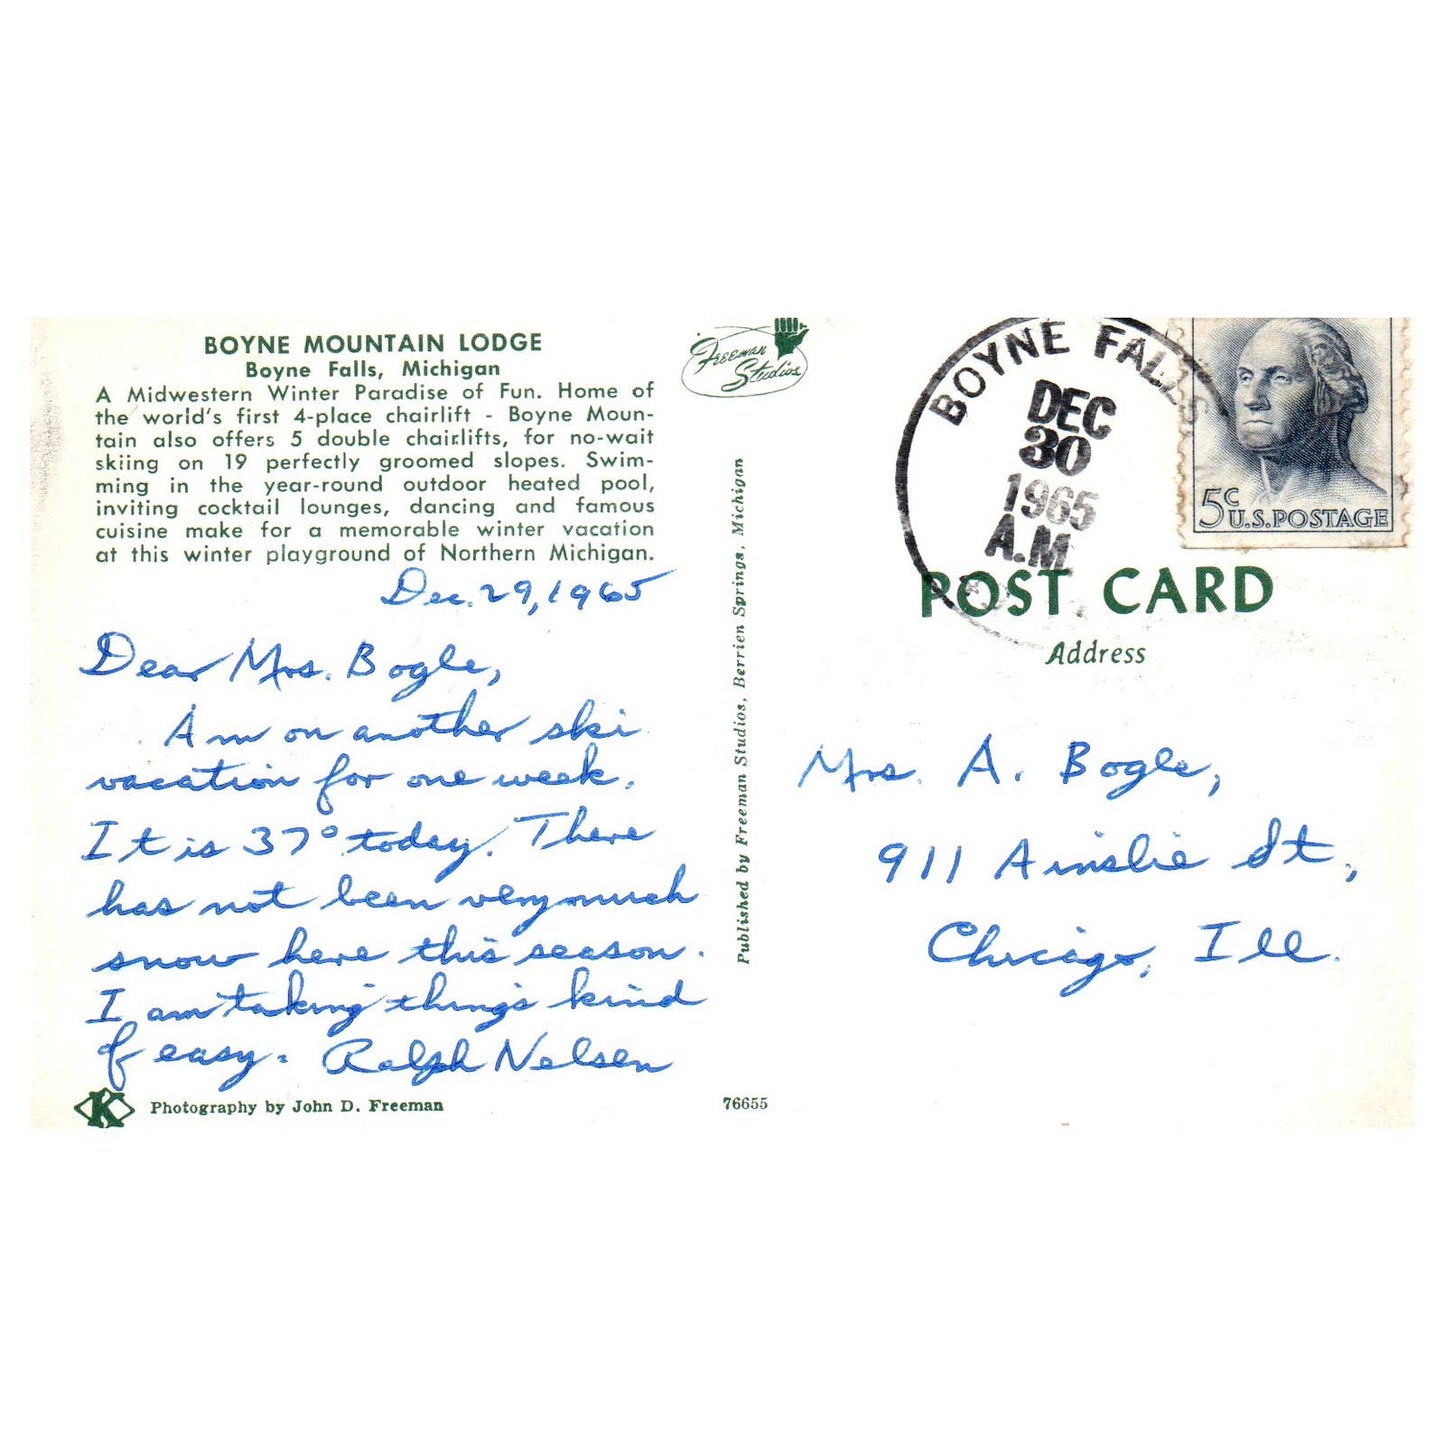 BOYNE MOUNTAIN LODGE
Boyne Falls, Michigan
A Midwestern Winter Paradise of Fun. Home of
the world's first 4-place chairlift - Boyne Moun-
tain also offers 5 double chairlifts, for no-wait
skiing on 19 perfectly groomed slopes. Swim-
ming in the year-round outdoor heated pool,
inviting cocktail lounges, dancing and famous
cuisine make for a memorable winter vacation
at this winter playground of Northern Michigan.
Dec. 29, 1965
Dear Mrs. Bogle,
Am on another ski
vacation for one week.
It is 37° today. There
has not been very much
snow here this season.
I am taking things kind
of easy. Ralph Nelsen
K
Photography by John D. Freeman
Freeman
Studios
Published by Freeman Studios, Berrien Springs, Michigan
76655
BOYNE FALLS
DEC
30
1965
A.M.
5c
U.S. POSTAGE
POST CARD
Address
Mrs. A. Bogle,
911 Ainslie St,
Chicago, Ill.